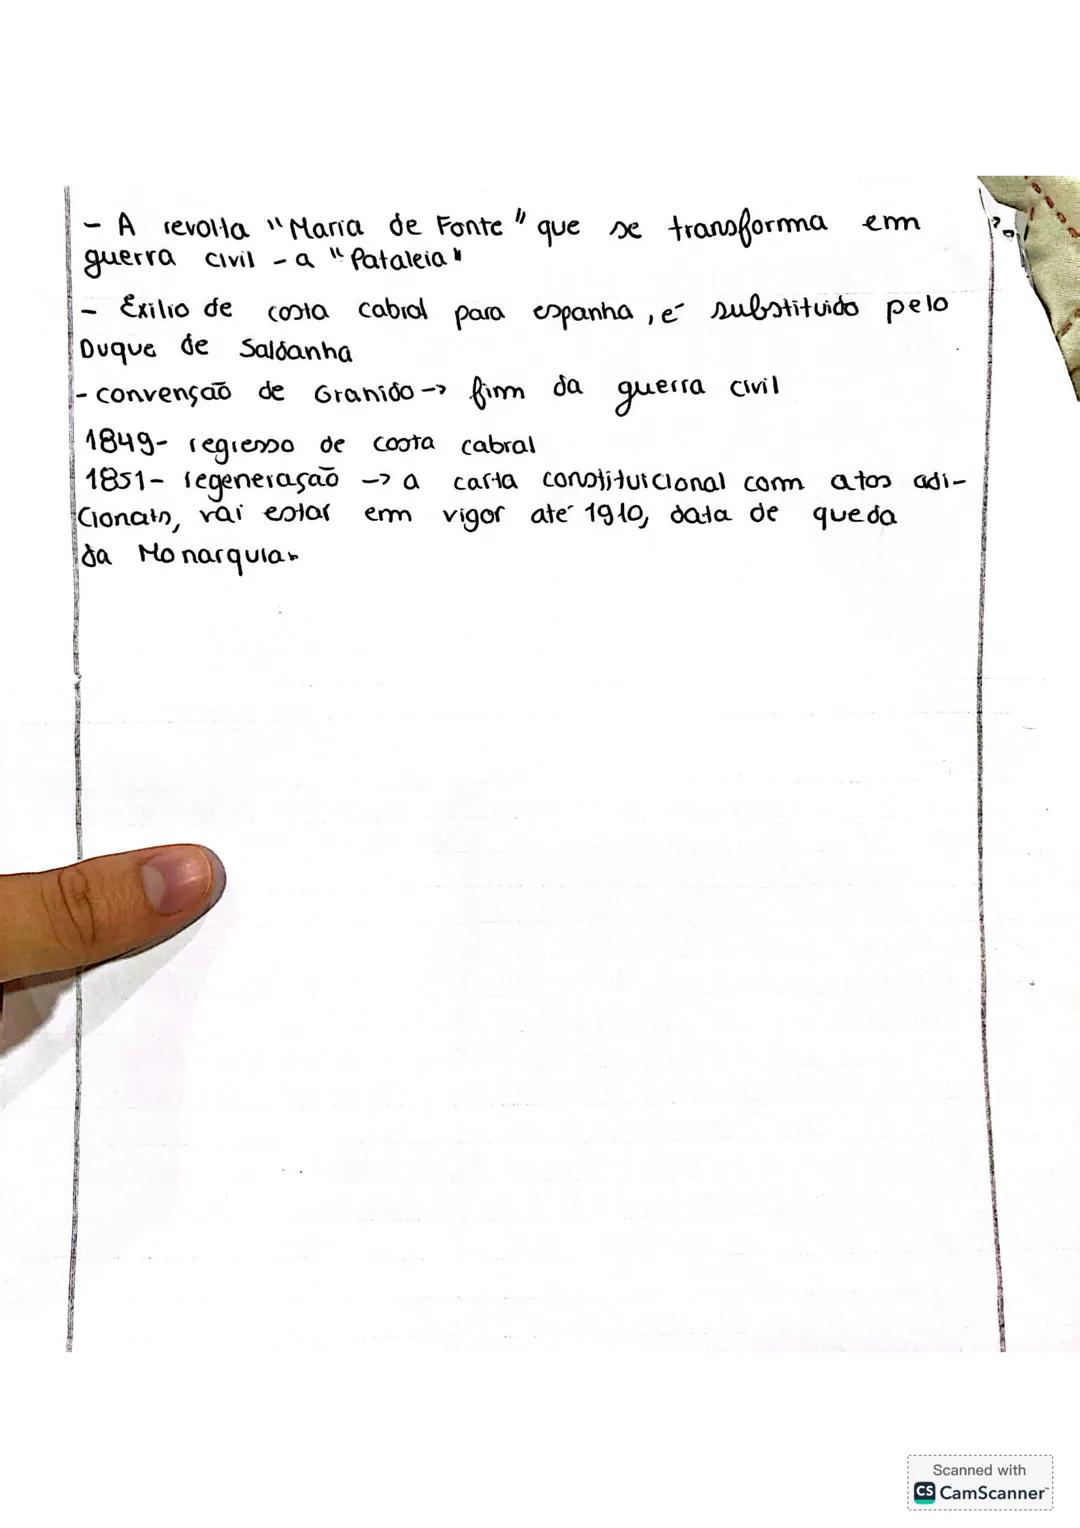 - A revolta "Maria de Fonte" que se transforma em
guerra civil - a "Pataleia"
- Exilio de costa cabral para espanha, é substituido pelo
Duque de Saldanha
- convenção de Granido -> fim da guerra civil
1849- regresso de costa cabral
1851- regeneração -> a carta constituicional com atos adi-
cionais, vai estar em vigor até 1910, data de queda
da Monarquia.
Scanned with
CS CamScanner